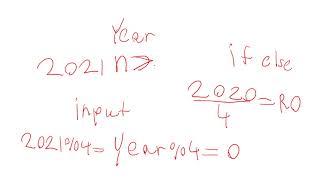 Year
2021 n →
if else
2020
4
=R0
input
2021%4= Year%4=0